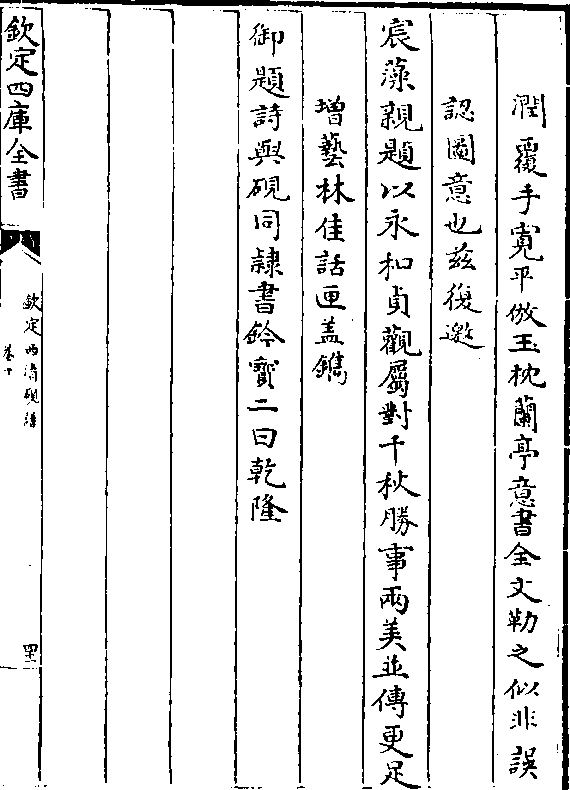 潤覆手寛平倣玉枕蘭亭意書全文勒之似非誤
認圖意也兹復邀
宸藻親題以永和貞觀屬對千秋勝事兩美並傳更足
增藝林佳話匣盖鐫
御題詩與硯同隷書鈐寳二曰乾隆
欽定四庫全書
欽定西清硯譜
卷十